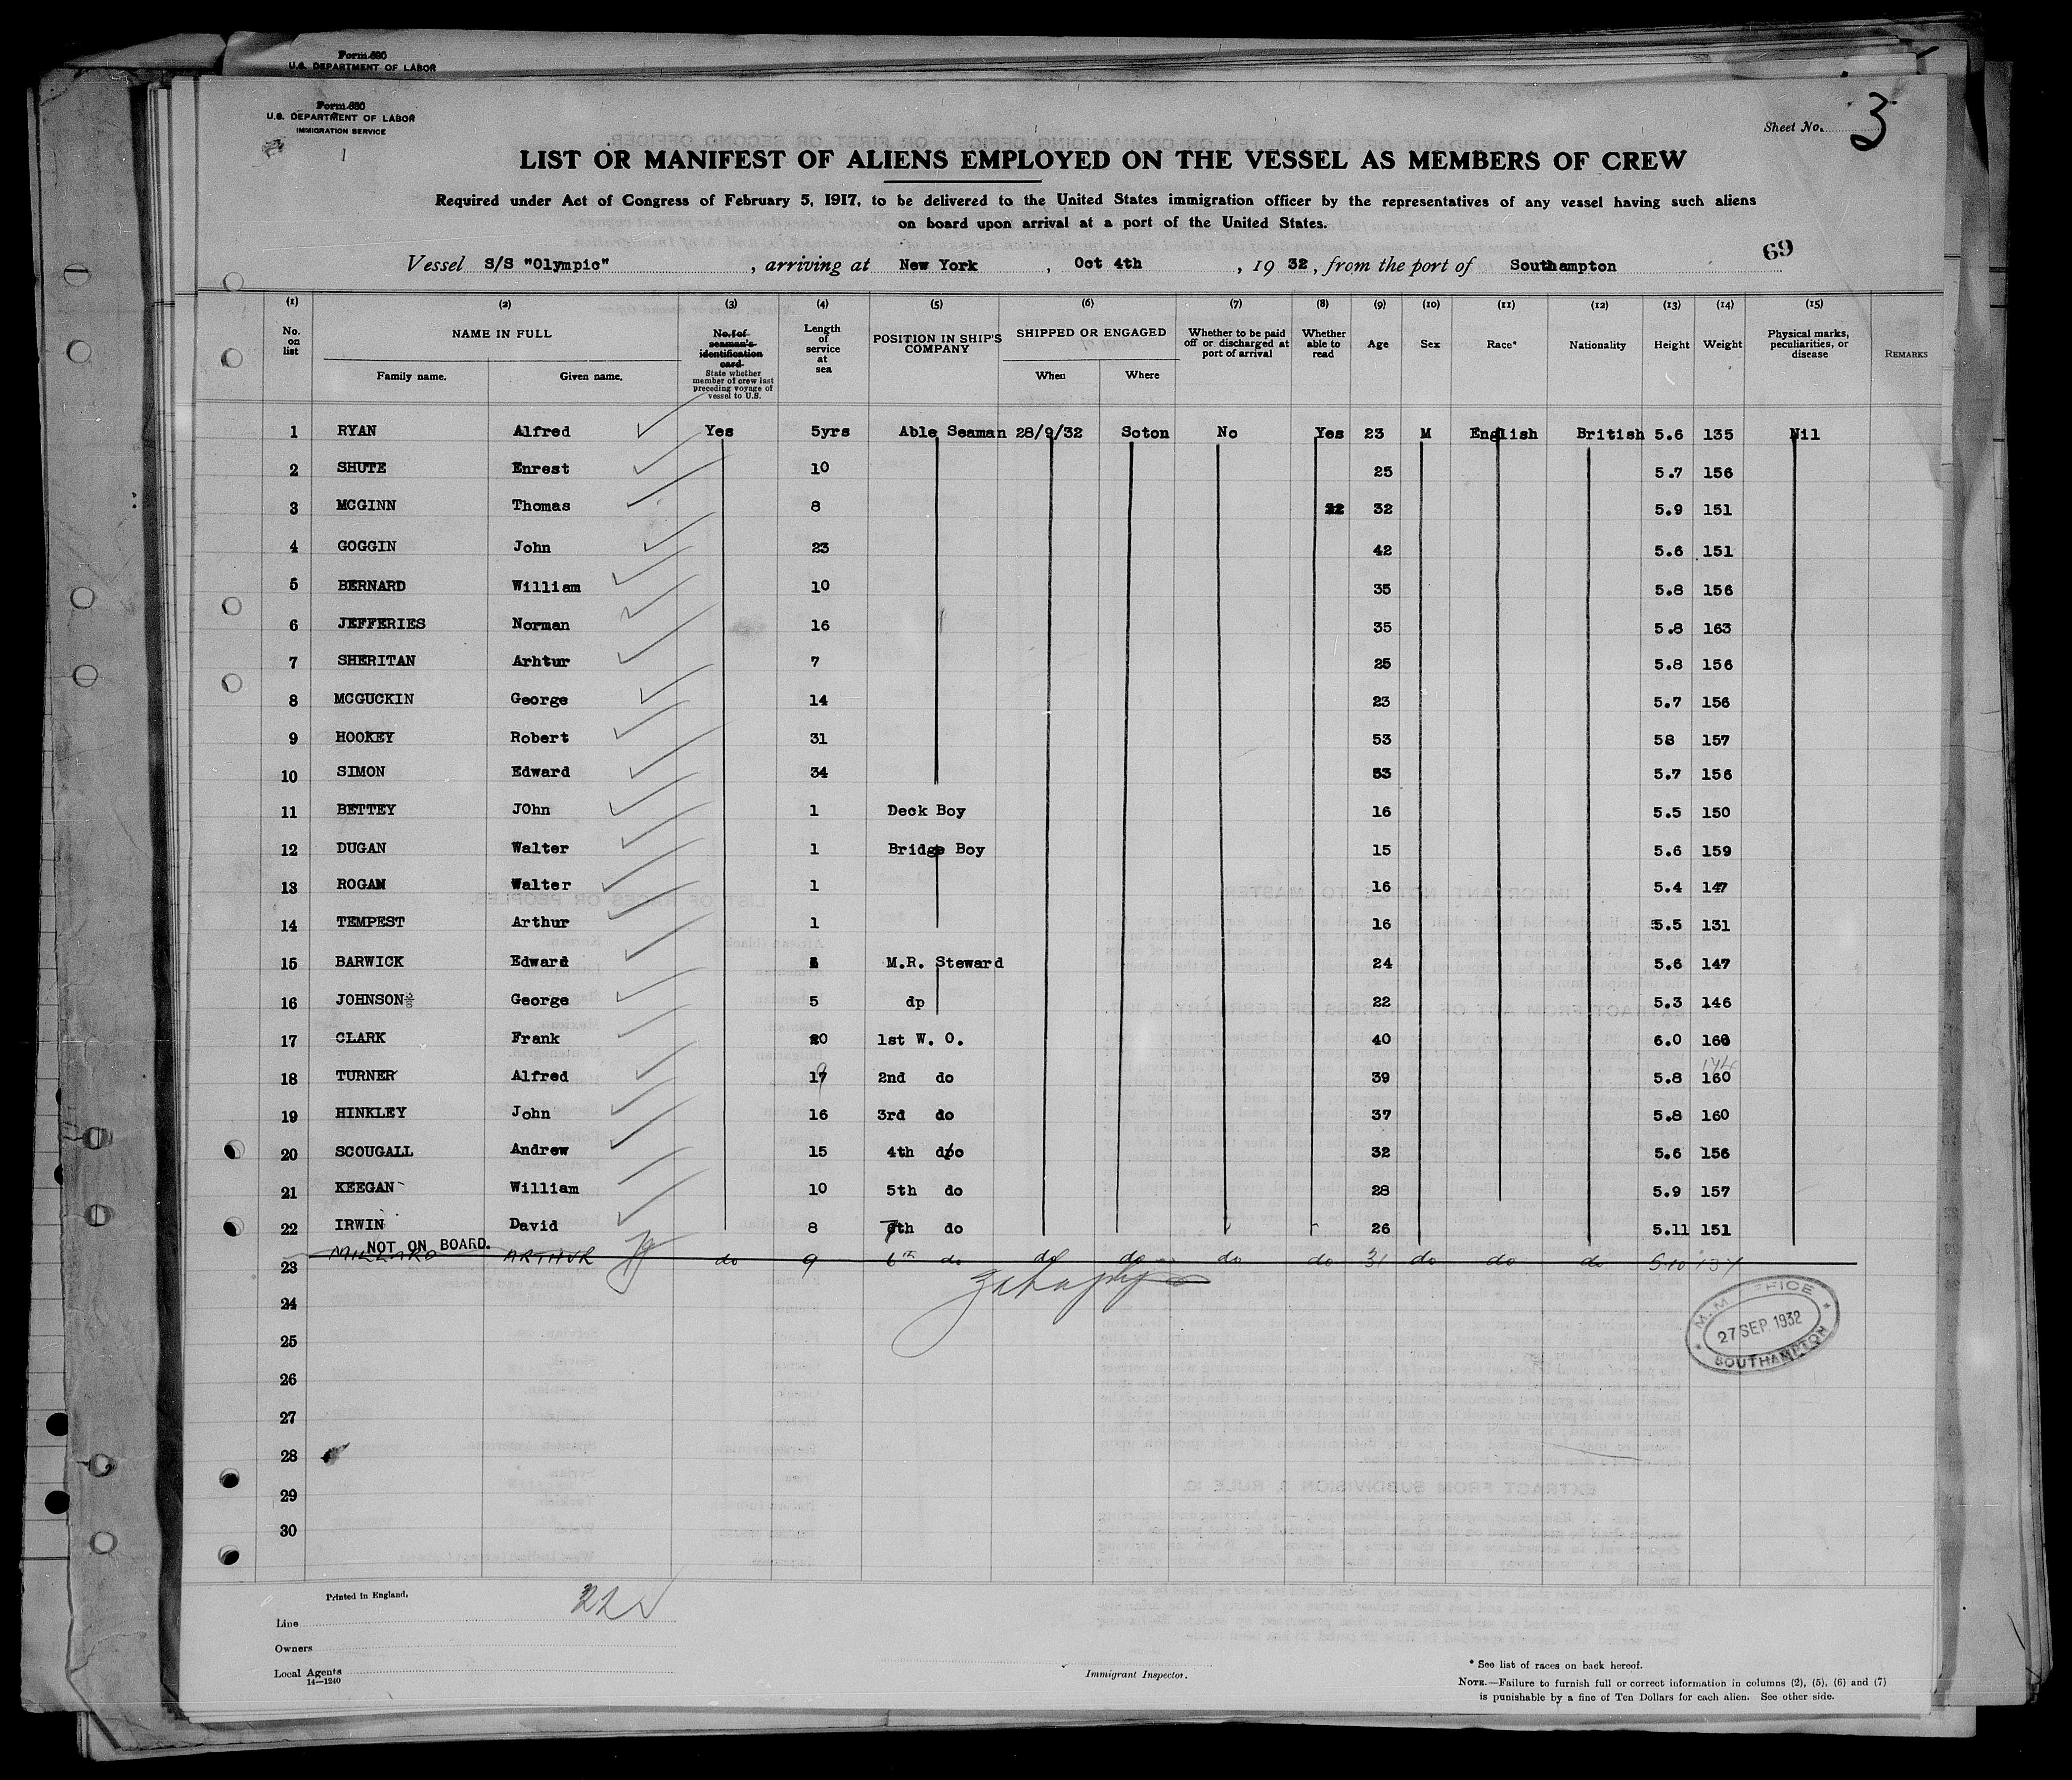 Form 680
U.S. DEPARTMENT OF LABOR
Form 680
U.S. DEPARTMENT OF LABOR
IMMIGRATION SERVICE
Sheet No. 3
LIST OR MANIFEST OF ALIENS EMPLOYED ON THE VESSEL AS MEMBERS OF CREW
Required under Act of Congress of February 5, 1917, to be delivered to the United States immigration officer by the representatives of any vessel having such aliens
on board upon arrival at a port of the United States.
69
Vessel S/S "Olympic", arriving at New York, Oct 4th, 19 32, from the port of Southampton
(1) (2) (3) (4) (5) (6) (7) (8) (9) (10) (11) (12) (13) (14) (15)
No. on list
NAME IN FULL
Family name. Given name.
No. of seaman's identification card
State whether member of crew last preceding voyage of vessel to U.S.
Length of service at sea
POSITION IN SHIP'S COMPANY
SHIPPED OR ENGAGED
When Where
Whether to be paid off or discharged at port of arrival
Whether able to read
Age
Sex
Race*
Nationality
Height
Weight
Physical marks, peculiarities, or disease
REMARKS
1 RYAN Alfred Yes 5yrs Able Seaman 28/9/32 Soton No Yes 23 M English British 5.6 135 Nil
2 SHUTE Enrest 10 25 5.7 156
3 MCGINN Thomas 8 32 32 5.9 151
4 GOGGIN John 23 42 5.6 151
5 BERNARD William 10 35 5.8 156
6 JEFFERIES Norman 16 35 5.8 163
7 SHERITAN Arhtur 7 25 5.8 156
8 MCGUCKIN George 14 23 5.7 156
9 HOOKEY Robert 31 53 58 157
10 SIMON Edward 34 53 5.7 156
11 BETTEY JOhn 1 Deck Boy 16 5.5 150
12 DUGAN Walter 1 Bridge Boy 15 5.6 159
13 ROGAM Walter 1 16 5.4 147
14 TEMPEST Arthur 1 16 5.5 131
15 BARWICK Edward M.R. Steward 24 5.6 147
16 JOHNSON George 5 dp 22 5.3 146
17 CLARK Frank 20 1st W. O. 40 6.0 160
144
18 TURNER Alfred 17 9 2nd do 39 5.8 160
19 HINKLEY John 16 3rd do 37 5.8 160
20 SCOUGALL Andrew 15 4th do 32 5.6 156
21 KEEGAN William 10 5th do 28 5.9 157
22 IRWIN David 8 7th do 26 5.11 151
NOT ON BOARD.
23 MILLARD ARTHUR do 9 6th do do do do do 31 do do do 5.10 137
24
25
26
27
28
29
30
M.M. OFFICE
27 SEP. 1932
SOUTHAMPTON
Printed in England.
22
Line
Owners
Local Agents
14—1240
Immigrant Inspector.
* See list of races on back hereof.
NOTE.—Failure to furnish full or correct information in columns (2), (5), (6) and (7)
is punishable by a fine of Ten Dollars for each alien. See other side.